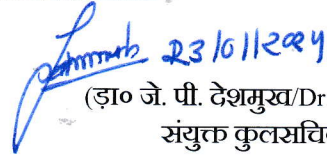 23/01/2024
(ड़ा० जे. पी. देशमुख/Dr
संयुक्त कुलसचि